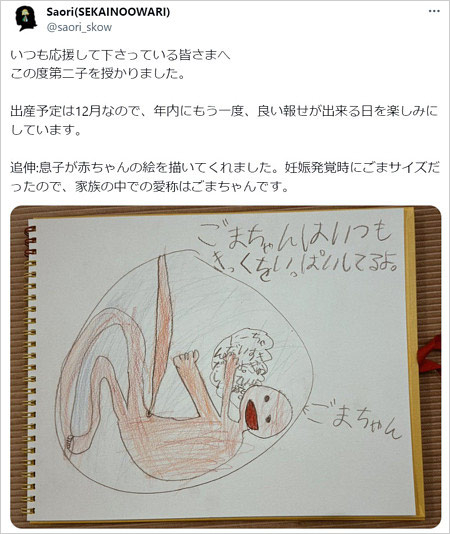 Saori(SEKAINOOWARI)
@saori_skow
いつも応援して下さっている皆さまへ
この度第二子を授かりました。
出産予定は12月なので、年内にもう一度、良い報せが出来る日を楽しみに
しています。
追伸:息子が赤ちゃんの絵を描いてくれました。妊娠発覚時にごまサイズだ
ったので、家族の中での愛称はごまちゃんです。
ごまちゃんはいつも
きっくをいっぱいしてるよ。
ごまちゃん